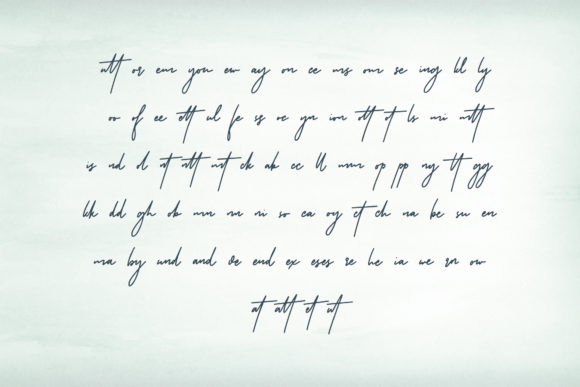 utt or em you ew ay on ce ms om se ing kl ly
oo of ee ett ul fe ss oc yn ion ott ot ls mi mtt
is nd ol nt ntt nit ck ak cc ll mm op pp ny tt gg
kk dd gh ob mn nn ni so ca oy ct ch na be su en
ma by und and ve end ex eses re he ia we rn ow
at att et ut